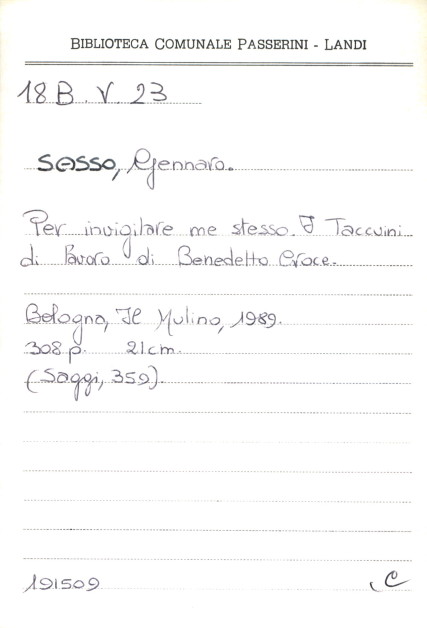 BIBLIOTECA COMUNALE PASSERINI - LANDI
18 B. V. 23
SASSO, Gennaro.
Per invigilare me stesso. I Taccuini
di lavoro di Benedetto Croce.
Bologna, Il Mulino, 1989.
308 p. 21 cm.
(Saggi, 359).
191509
C